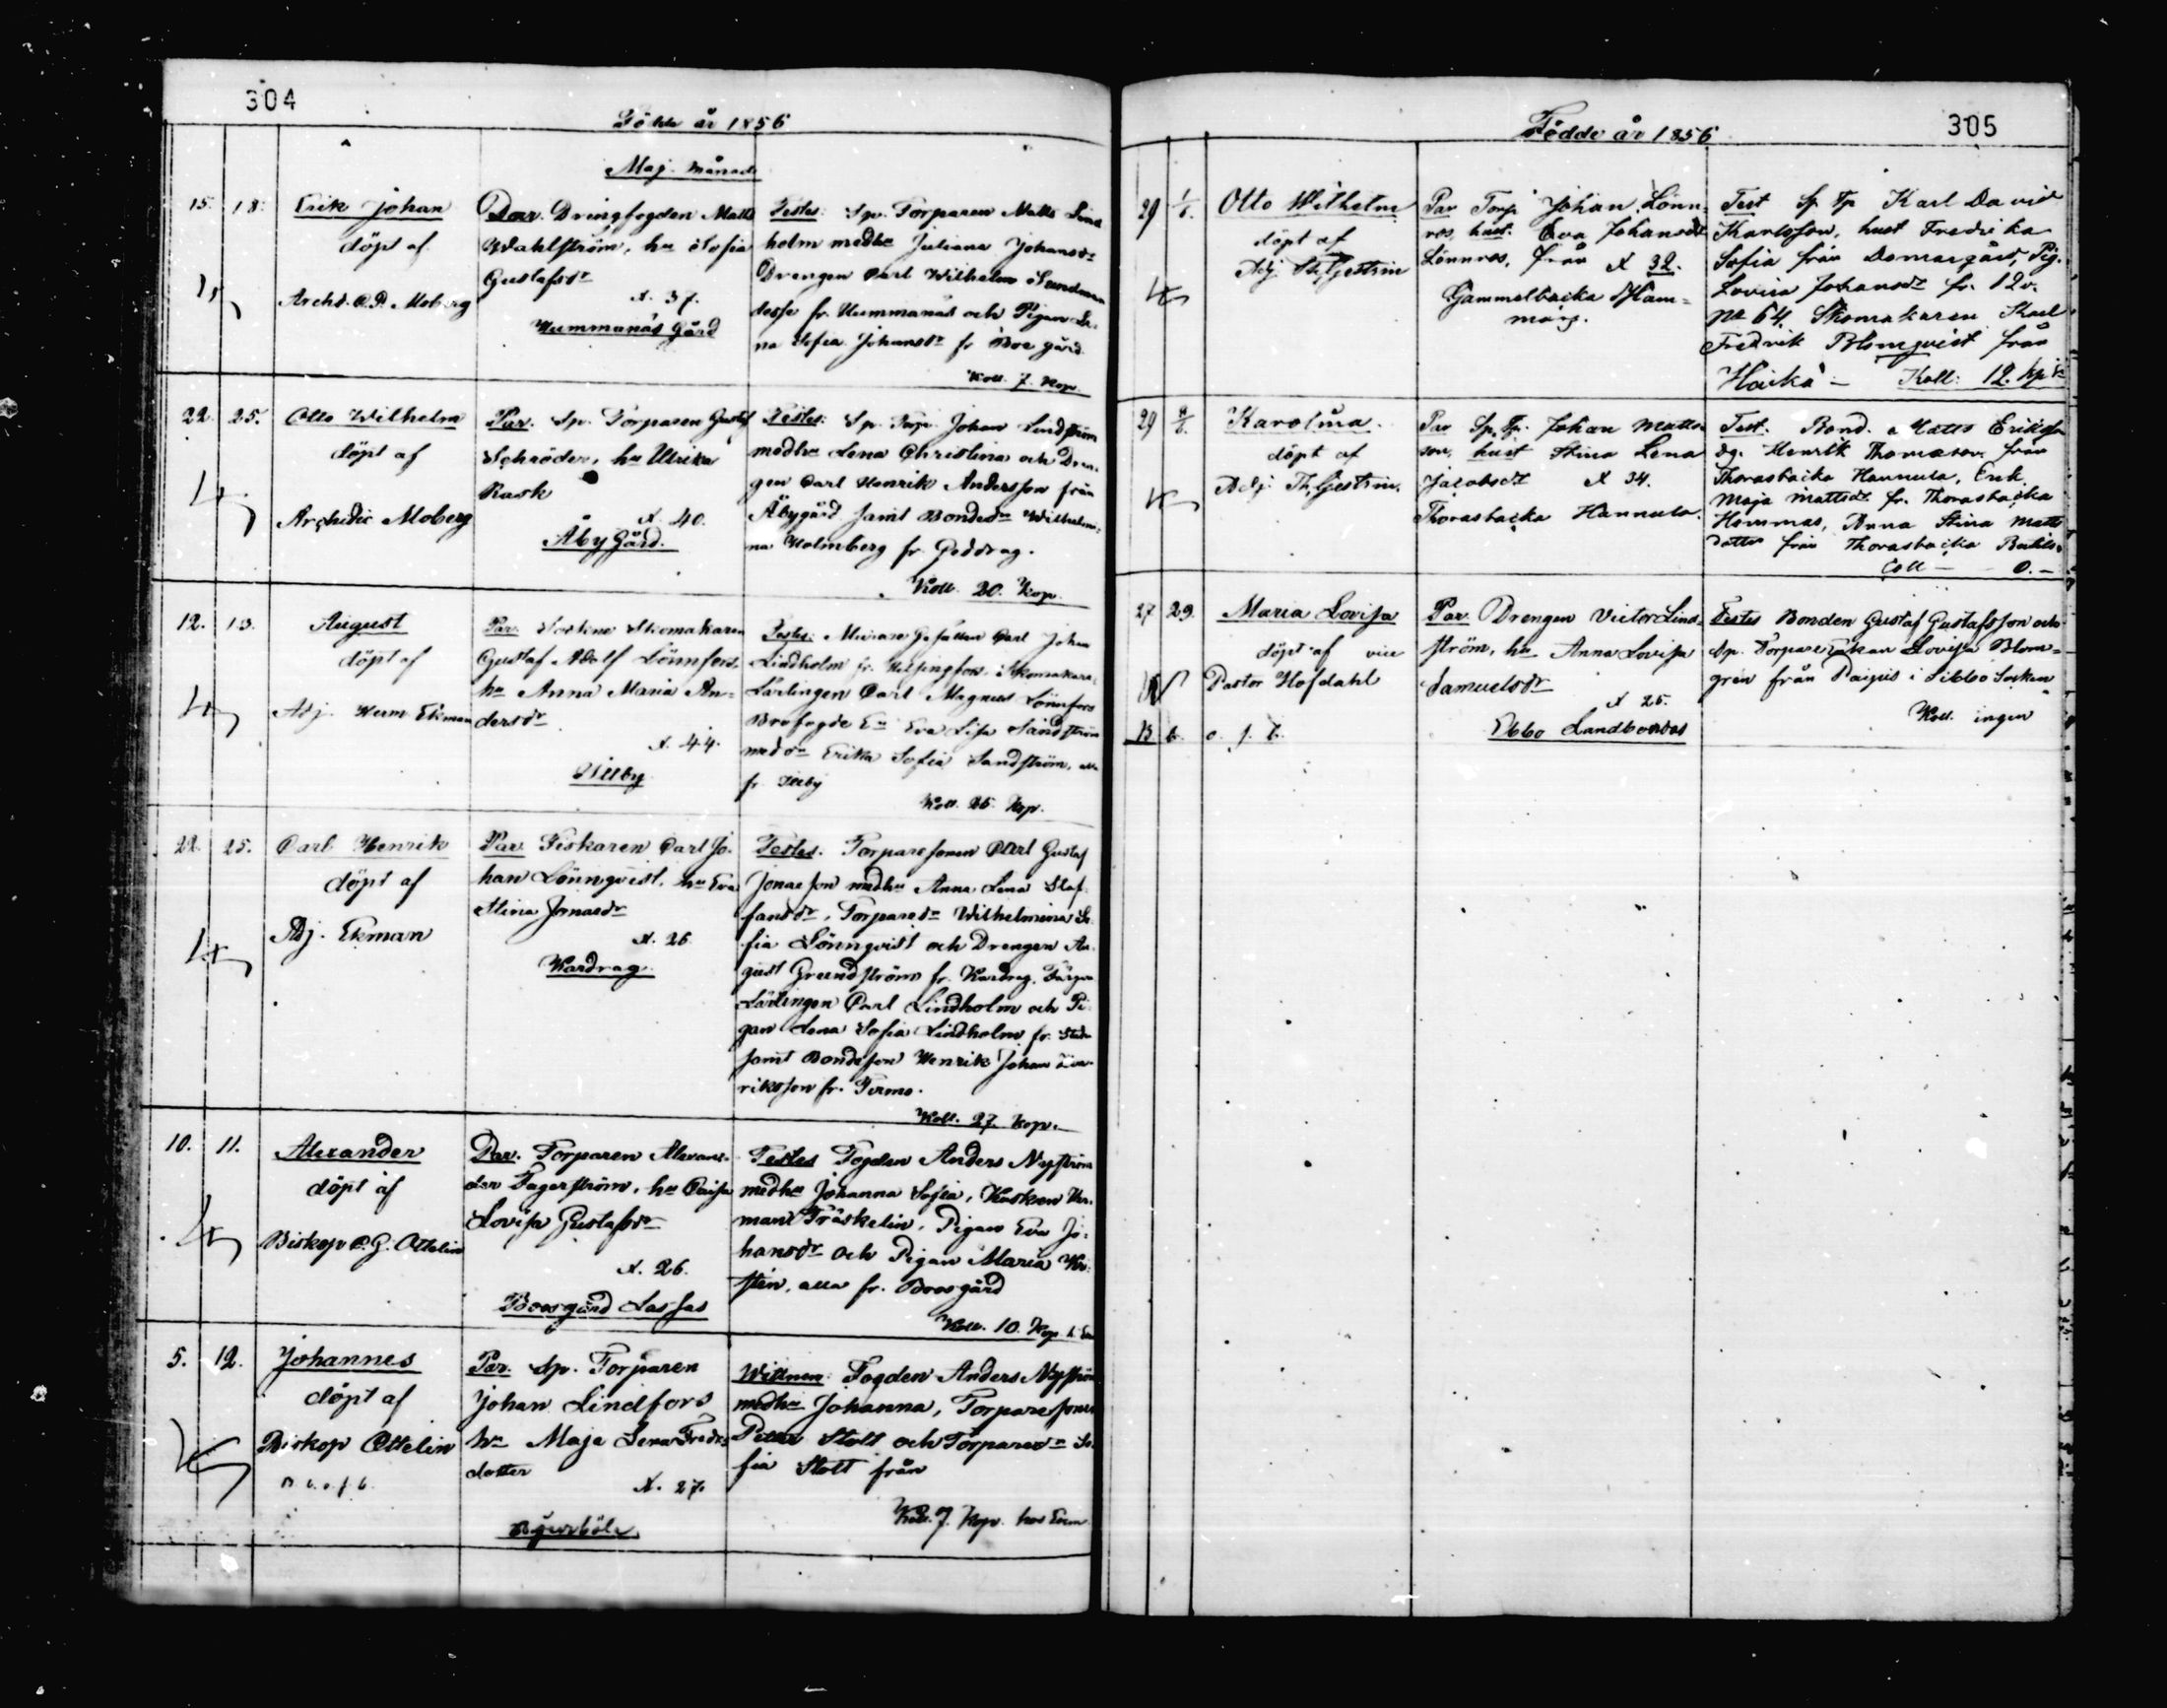 304
Födde år 1856
Maj månad
15. 18. Erik Johan
döpt af
Archid. C. R. Moberg
Par. Drängfogden Matts
Wahlström, hu Sofia
Gustafsdr
A. 37.
Hummanäs Gård
Testes: Sp. Torparen Matts Lind
holm med hu Juliana Johansdr
Drengen Carl Wilhelm Sundman
desse fr. Hummanäs och Pigan Le-
na Sofia Johansdr fr Boe gård.
Koll. 7. Kop.
22. 25. Otto Wilhelm
döpt af
Archidic Moberg
Par. Sp. Torparen Gustaf
Schröder, hu Ulrika
Rask
A. 40.
Åby Gård.
Testes: Sp. Torp. Johan Lindström
med hu Lena Christina och Dren-
gen Carl Henrik Andersson från
Åbygård samt Bondedr Wilhelmi-
na Holmberg fr. Peddrag.
Koll. 20. Kop.
12. 13. August
döpt af
Adj. Herm. Ekman
Par. Sockne Skomakaren
Gustaf Adolf Lönnfors,
hu Anna Maria An-
dersdr
A. 44.
Illby
Testes: Murare Gesällen Carl Johan
Lindholm fr. Helsingfors, Skomakare-
Lärlingen Carl Magnus Lönnfors
Brofogde Eu Eva Lisa Sandström
med dr Erika Sofia Sandström, alla
fr. Illby
Koll. 25. Kop.
22. 25. Carl Henrik
döpt af
Adj. Ekman
Par. Fiskaren Carl Jo-
han Lönnqvist, hu Eva
Stina Jonasdr
A. 26
Kardrag.
Testes. Torparesonen Carl Gustaf
Jonasson med hu Anna Lena Staf-
fansdr, Torparedr Wilhelmina So-
fia Lönnqvist och Drengen Au-
gust Grundström fr. Kardrag. Färgare
Lärlingen Carl Lindholm och Pi-
gan Lena Sofia Lindholm fr. Stad
samt Bondeson Henrik Johan Hen-
riksson fr. Tirmo.
Koll. 27. Kop.
10. 11. Alexander
döpt af
Biskop C. G. Ottelin
Par. Torparen Alexan-
der Fagerström, hu Caisa
Lovisa Gustafsdr
A. 26.
Boesgård Lassas
Testes Fogden Anders Nyström
med hu Johanna Sofia, Kusken Her-
man Träskelin, Pigan Eva Jo-
hansdr och Pigan Maria
alla fr. Boesgård
Koll. 10. Kop.
5. 12. Johannes
döpt af
Biskop Ottelin
Par. Sp. Torparen
Johan Lindfors
hu Maja Lena Fredr-
dotter
A. 27.
Wittnen: Fogden Anders Nyström
med hu Johanna, Torparesonen
Petter Stolt och Torparedr So-
fia Stolt från
Koll. 7. Kop.
Födde år 1856
305
29 1/6. Otto Wilhelm
döpt af
Adj. Th. Gestrin
Par Torp Johan Lönn-
ros, hust. Eva Johansdt
Lönnros, från A 32.
Gammelbacka Ham-
marg.
Test Sp Tp Karl David
Karlsson, hust Fredrika
Sofia från Domargård, Pig.
Lovisa Johansdt fr. 12 qv.
No 64, Skomakaren Karl
Fredrik Blomqvist från
Haikå - Koll: 12. kp sr
29 8/6. Karolina.
döpt af
Adj. Th. Gestrin.
Par Sp. Tp. Johan Matts-
son, hust Stina Lena
Jacobsdt A 34.
Thorasbacka Hannula.
Test. Bond. Matts Eriksson
Dg. Henrik Thomasson från
Thorasbacka Hannula, Enk.
Maja Mattsdt. fr. Thorasbacka
Hommas, Anna Stina Matts
dotter från Thorasbacka
Coll — 0. —
27 29. Maria Lovisa
döpt af vice
Pastor Hofdahl
B. b. o. f. b.
Par. Drengen Victor Lind-
ström, hu Anna Lovisa
Samuelsdr
A 25.
Ebbo Landbondas
Testes Bonden Gustaf Gustafsson och
Sp. Torpare Enkan Lovisa Blom-
gren från Paipis i Sibbo Socken
Koll. ingen